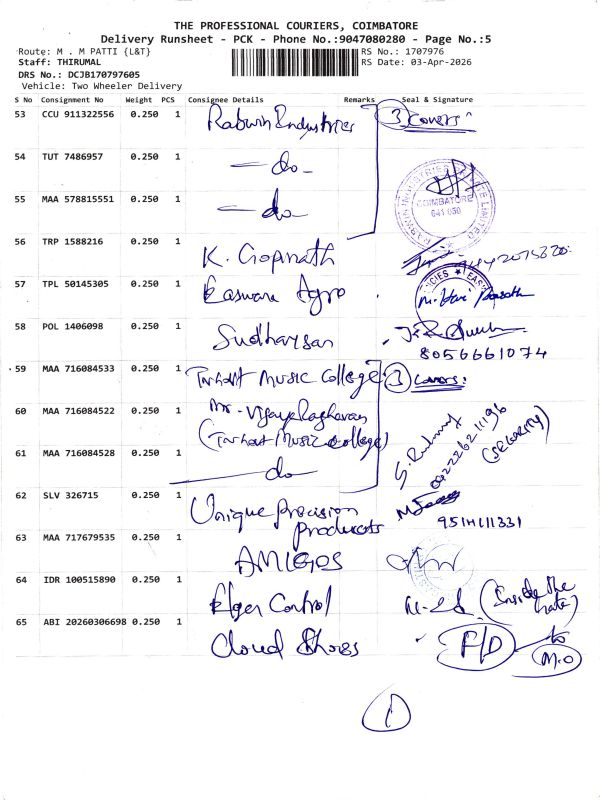 THE PROFESSIONAL COURIERS, COIMBATORE
Delivery Runsheet - PCK - Phone No.:9047080280 - Page No.:5
Route: M . M PATTI {L&T} RS No.: 1707976
Staff: THIRUMAL RS Date: 03-Apr-2026
DRS No.: DCJB170797605
Vehicle: Two Wheeler Delivery
S No Consignment No Weight PCS Consignee Details Remarks Seal & Signature
53 CCU 911322556 0.250 1 Industries 3 Covers
54 TUT 7486957 0.250 1 — do —
55 MAA 578815551 0.250 1 — do — COIMBATORE 641 050
56 TRP 1588216 0.250 1 K. Gopinath
57 TPL 50145305 0.250 1 Easwari Agro
58 POL 1406098 0.250 1 Sudharsan
8056661074
59 MAA 716084533 0.250 1 Music College 3 Covers:
60 MAA 716084522 0.250 1 Mr. Vijaya Raghavan
(Music College) (SECURITY)
61 MAA 716084528 0.250 1 — do —
62 SLV 326715 0.250 1 Unique Precision
Products
63 MAA 717679535 0.250 1 AMIGOS
64 IDR 100515890 0.250 1 Elger Control (Inside the Gate)
65 ABI 20260306698 0.250 1 Cloud Shoes F/D to M.O
1